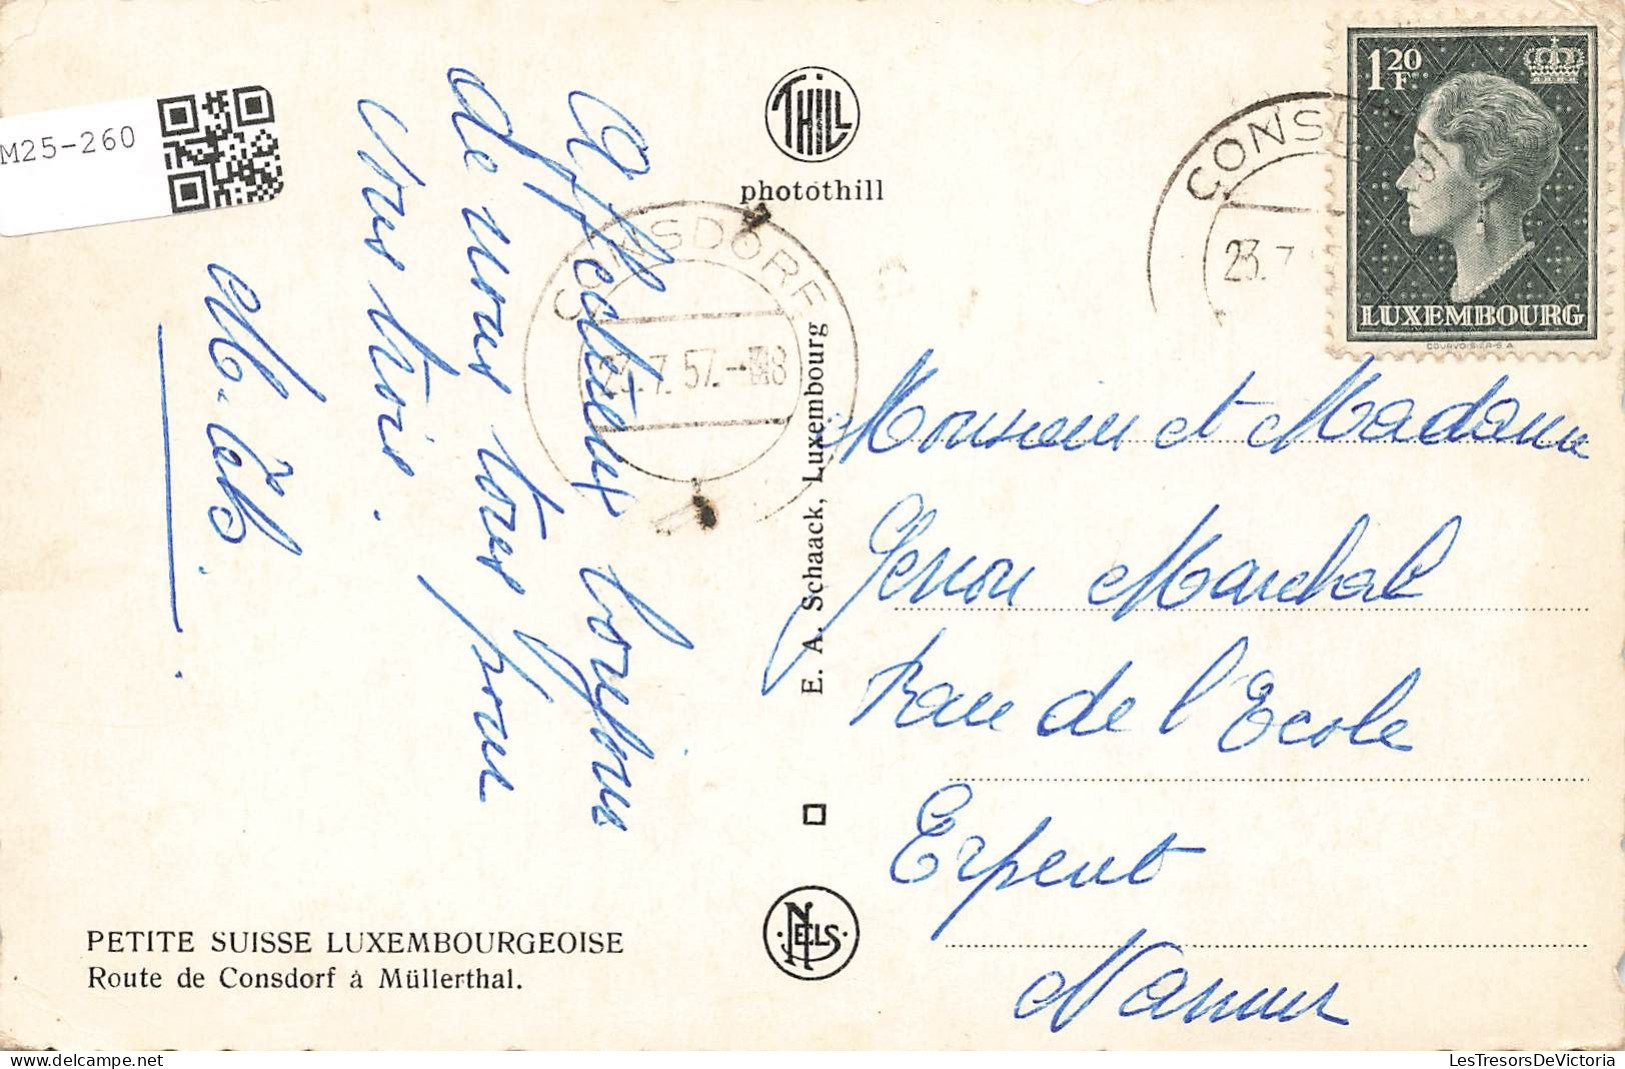 M25-260
THILL
photothill
1 20 F
LUXEMBOURG
COURVOISIER S.A.
CONSDORF
23.7.
CONSDORF
23.7.57.-18
Affectueux bonjour
de nous tous pour
vous trois.
E. A. Schaack, Luxembourg
Monsieur et Madame
Genon Marchal
Rue de l'Ecole
Erpent
Namur
NELS
PETITE SUISSE LUXEMBOURGEOISE
Route de Consdorf à Müllerthal.
LesTresorsDeVictoria